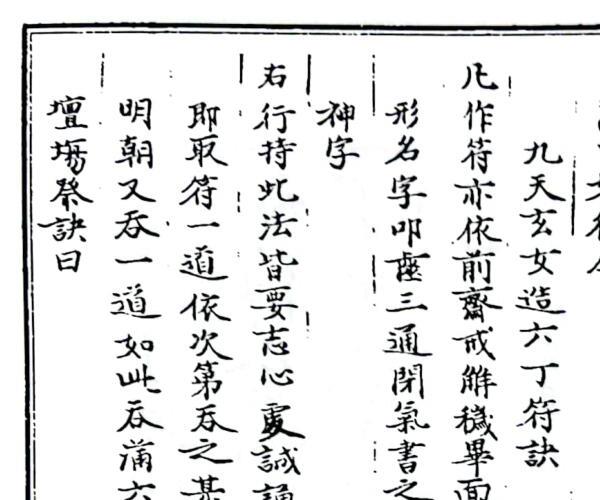 九天玄女造六丁符訣
凡作符亦依前齋戒解穢畢面
形名字叩齒三通閉氣書之
神字
右行持此法皆要志心虔誠誦
即取符一道依次第吞之其
明朝又吞一道如此吞滿六
壇場祭訣曰